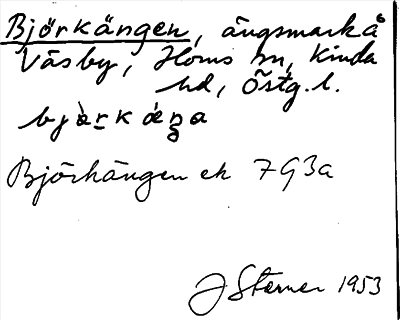 Björkängen, ängsmark å
Väsby, Horns sn, Kinda
hd, Östg. l.
bjär̲käŋa
Björkängen ek 7G3a
J Sterner 1953